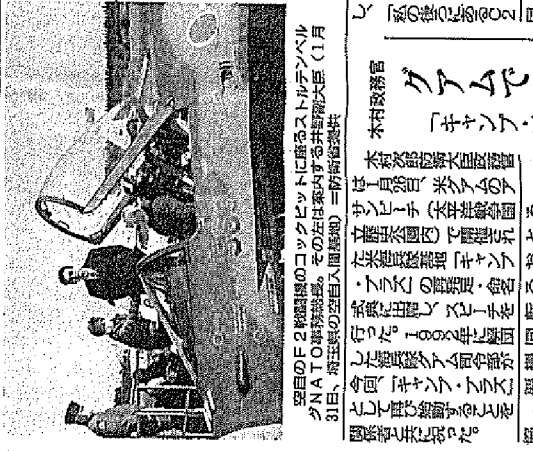 空自のF2戦闘機のコックピットに座るストルテンベル
グNATO事務総長。その左は案内する井野副大臣(1月
31日、埼玉県の空自入間基地)=防衛省提供
し、「私の後ろにあるC2
木村政務官
グアムで
「キャンプ・
木村次郎防衛大臣政務官
は1月26日、米グアムのア
サンビーチ(太平洋戦争国
立歴史公園内)で開催され
た米海兵隊基地「キャンプ
・ブラズ」の再発足・命名
式典に出席し、スピーチを
行った。1992年に閉鎖
した海兵隊グアム司令部が
今回、「キャンプ・ブラズ」
として再び始動することを
関係者と共に祝った。